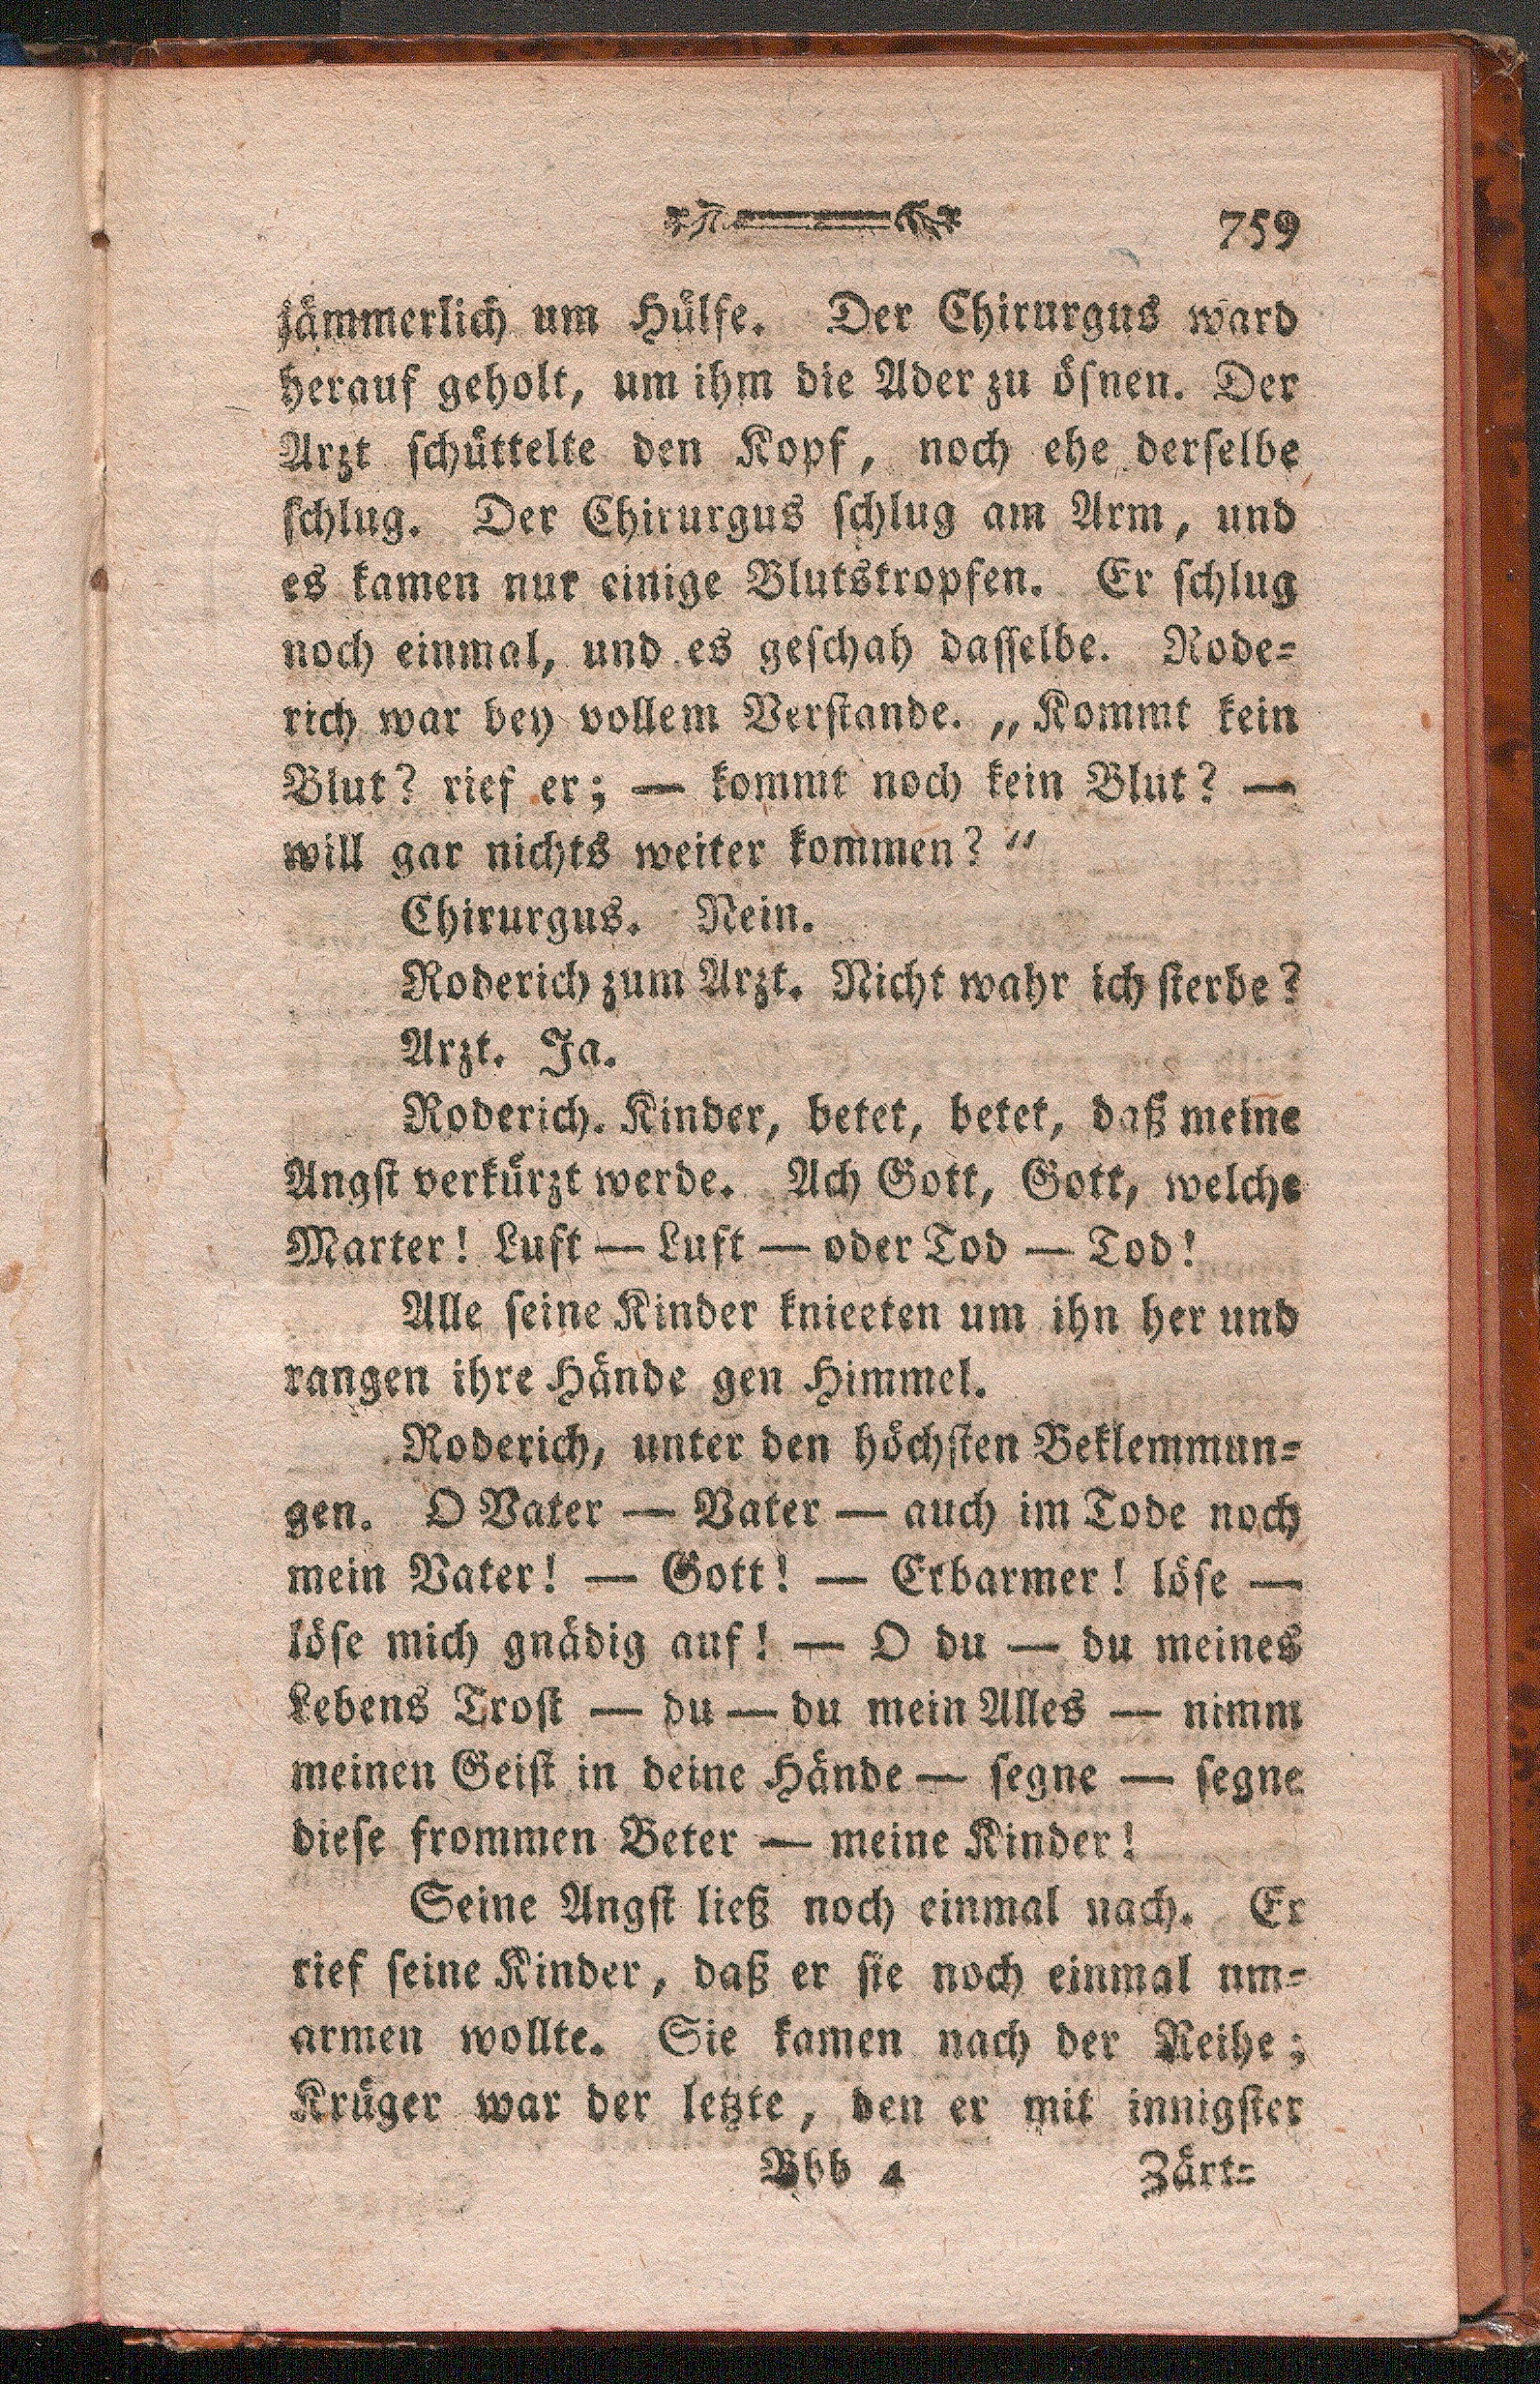 759
jämmerlich um Hülfe. Der Chirurgus ward
herauf geholt, um ihm die Ader zu öfnen. Der
Arzt schüttelte den Kopf, noch ehe derselbe
schlug. Der Chirurgus schlug am Arm, und
es kamen nur einige Blutstropfen. Er schlug
noch einmal, und es geschah dasselbe. Rode-
rich war bey vollem Verstande. „Kommt kein
Blut? rief er; — kommt noch kein Blut? —
will gar nichts weiter kommen?“
Chirurgus. Nein.
Roderich zum Arzt. Nicht wahr ich sterbe?
Arzt. Ja.
Roderich. Kinder, betet, betet, daß meine
Angst verkürzt werde. Ach Gott, Gott, welche
Marter! Luft — Luft — oder Tod — Tod!
Alle seine Kinder knieeten um ihn her und
rangen ihre Hände gen Himmel.
Roderich, unter den höchsten Beklemmun-
gen. O Vater — Vater — auch im Tode noch
mein Vater! — Gott! — Erbarmer! löse —
löse mich gnädig auf! — O du — du meines
Lebens Trost — du — du mein Alles — nimm
meinen Geist in deine Hände — segne — segne
diese frommen Beter — meine Kinder!
Seine Angst ließ noch einmal nach. Er
rief seine Kinder, daß er sie noch einmal um-
armen wollte. Sie kamen nach der Reihe;
Krüger war der letzte, den er mit innigster
Bbb 4 Zärt-